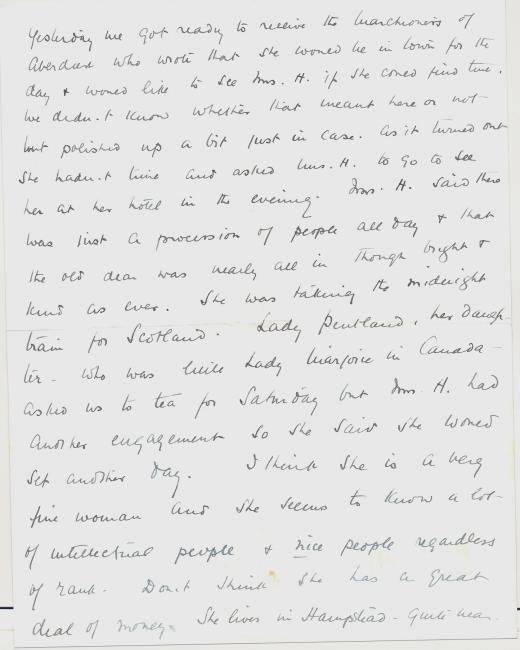 Yesterday we got ready to receive the Marchioness of
Aberdeen who wrote that she would be in town for the
day & would like to see Mrs. H. if she could find time.
We didn't know whether that meant here or not
but polished up a bit just in case. As it turned out
she hadn't time and asked Mrs. H. to go to see
her at her hotel in the evening. Mrs. H. said there
was just a procession of people all day & that
the old dear was nearly all in though bright &
kind as ever. She was taking the midnight
train for Scotland. Lady Pentland, her daugh-
ter - who was little Lady Marjorie in Canada -
asked us to tea for Saturday but Mrs. H. had
another engagement so she said she would
set another day. I think she is a very
fine woman and she seems to know a lot
of intellectual people & nice people regardless
of rank. Don't think she has a great
deal of money. She lives in Hampstead - quite near.